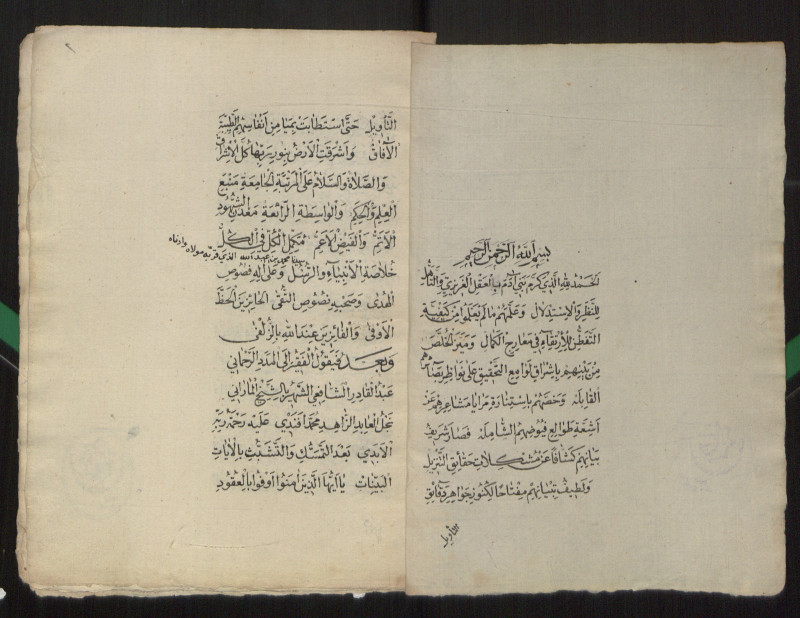 بسم الله الرحمن الرحيم
الحمد لله الذي كرم بني آدم بالعقل الغريزي والتأهل
للنظر والاستدلال وعلمهم ما لم يعلموا من كيفية
التفطن للارتقاء في معارج الكمال وميز الخلص
من بينهم باشراق لوامع التحقيق على نواظر بصائرهم
القابلة وخصهم باستنارة مرايا مشاعرهم عن
أشعة طوالع فيوضهم الشاملة فصار شريف
بيانهم كشافا عن مشكلات حقايق التنزيل
ولطيف تبيانهم مفتاحا لكنوز جواهر دقايق
التأويل
التأويل حتى استطابت بميامن أنفاسهم الطيبة
الآفاق وأشرقت الأرض بنور ربها كل الاشراق
والصلاة والسلام على المرتبة الجامعة منبع
العلم والحكم والواسطة الرائعة معدن الشهود
الأتم والفيض الأعم ممكل الكل في الكل
سيدنا محمد بن عبد الله الذي قربه مولاه وادناه
خلاصة الأنبياء والرسل وعلى آله فصوص
الهدى وصحبه نصوص التقى الحايزين الحظ
الأوفى والفايزين عند الله بالزلفى
وبعد فيقول الفقير إلى المدد الرحماني
عبد القادر الشافعي الشهير بالشيخ
نجل العابد الزاهد محمد أفندي عليه رحمة ربه
الأبدي بعد التمسك والتشبث بالآيات
البينات يا أيها الذين آمنوا أوفوا بالعقود